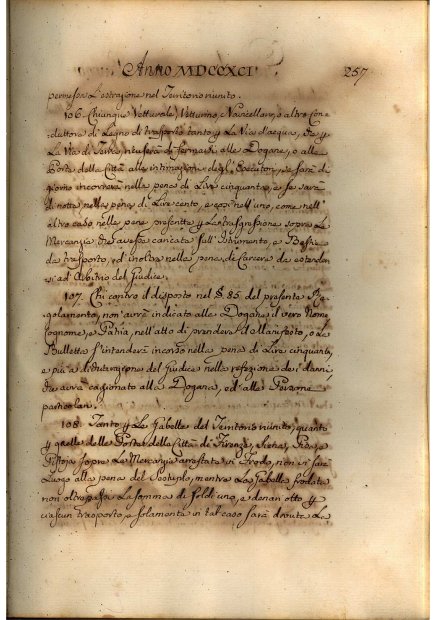 Anno MDCCXCI 257
permessa l'estrazione nel Territorio riunito.
106. Chiunque Vetturale, Vetturino, Navicellaro, o altro Con-
duttore di Legno di trasporto tanto p la Via d'acqua, che p
La Via di Terra, ricuserà di fermarsi alle Dogane, o alle
Porte della Città alle intimazioni degl'Esecutori, se sarà di
giorno incorrerà nella pena di Lire cinquanta, e se sarà
di notte nella pena di Lire cento, e così nell'uno, come nell'
altro caso nelle pene prescritte p La trasgressione sopra La
Mercanzia che avesse caricata sull'Istrumento, o Bestie
da trasporto, ed inoltre nelle pena di Carcere da estender-
si ad Arbitrio del Giudice.
107. Chi contro il disposto nel §. 85. del presente Re-
golamento, non avrà indicato alle Dogane il vero Nome
Cognome, e Patria, nell'atto di prendere il Manifesto, o La
Bulletta s'intenderà incorso nella pena di Lire cinquanta,
e più a dichiarazione del Giudice nella refezione de' danni,
che avrà cagionato alla Dogana, ed alle Persone
particolari.
108. Tanto p Le Gabelle del Territorio riunito, quanto
p quelle delle Porte delle Città di Firenze, Siena, Pisa, e
Pistoja sopra La Mercanzia arrestata in Frodo, non si farà
Luogo alla pena del Settuplo, mentre La Gabella frodata
non oltrepassi La somma di soldi uno, e denari otto p
ciascun trasporto, e solamente in tal caso sarà dovuta La